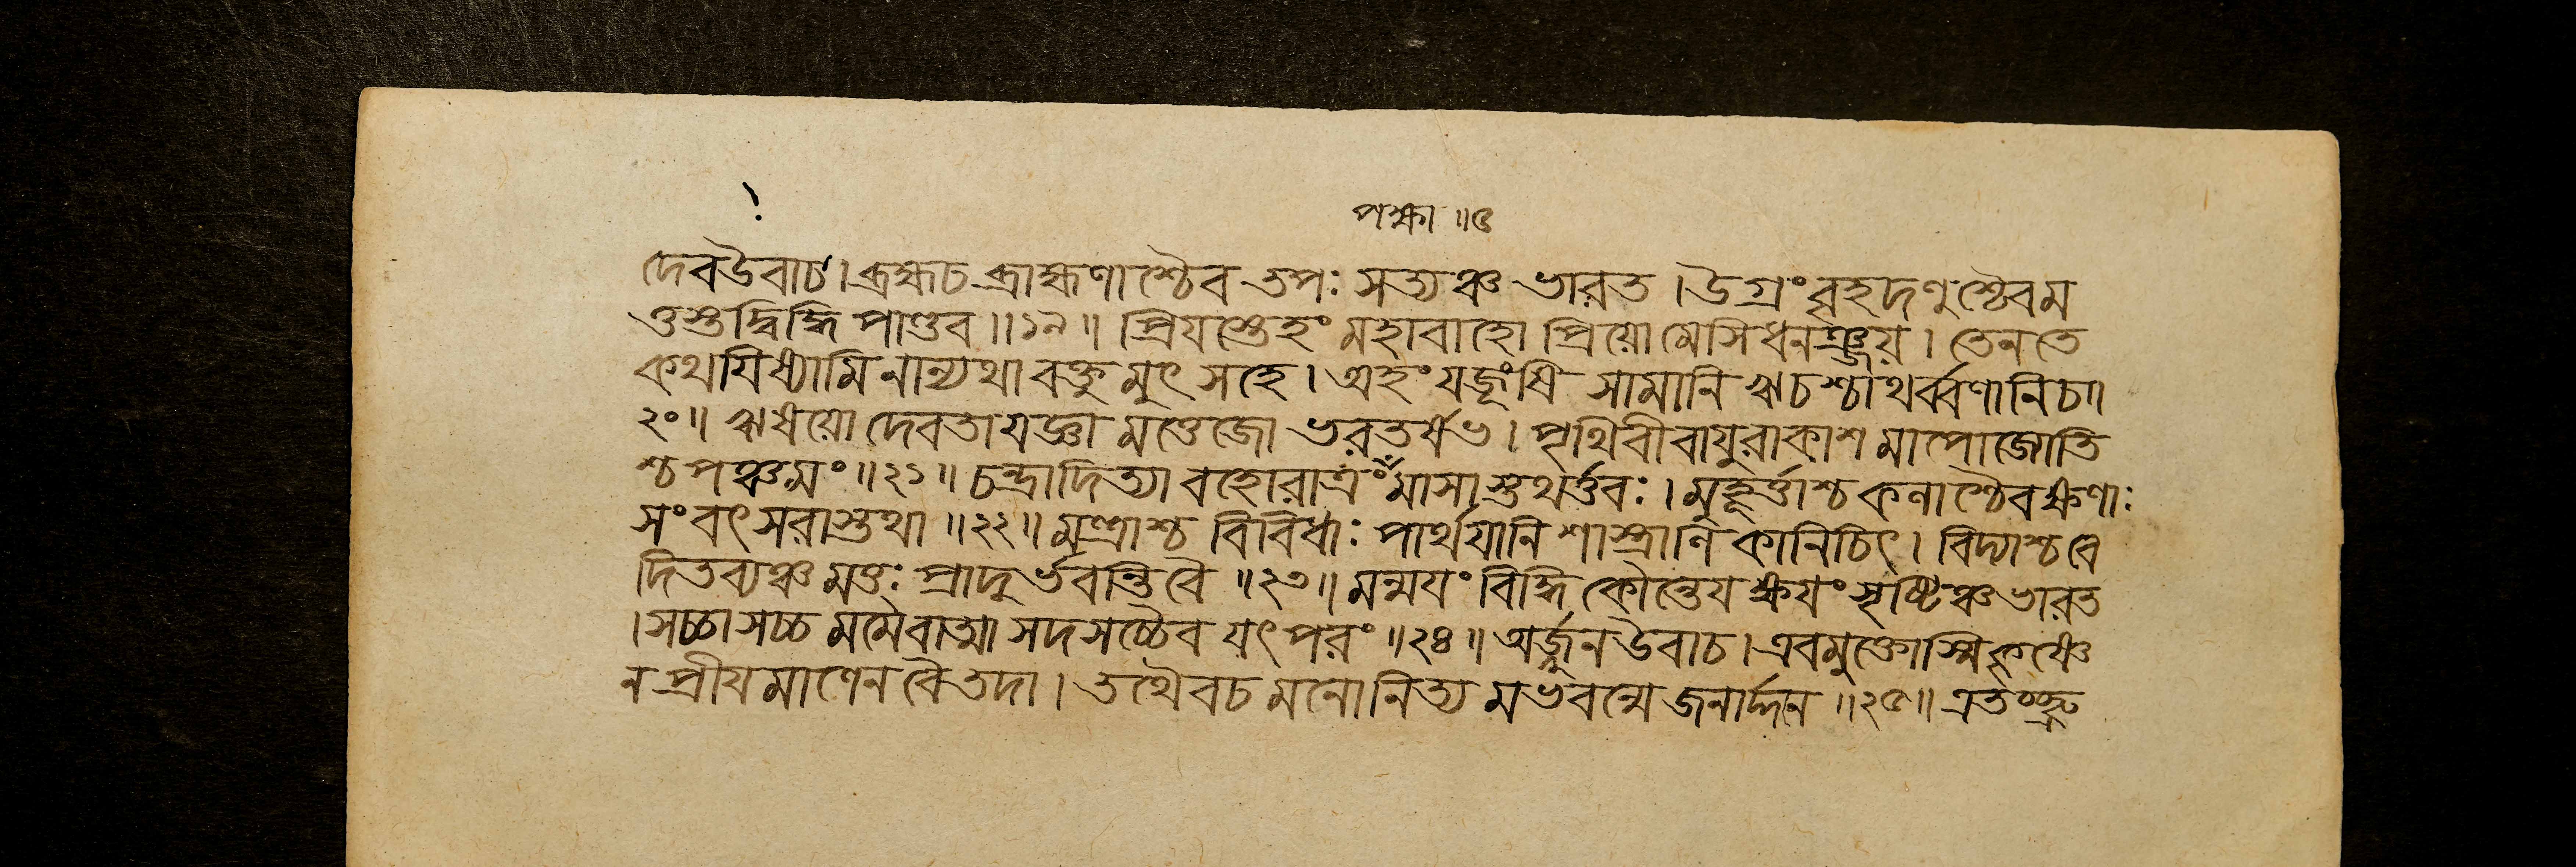 পক্ষা ॥৫
দেবউবাচ।ব্রহ্মচ ব্রাহ্মণাশ্চৈব তপঃ সত্যঞ্চ ভারত ।উগ্রং বৃহদণুশ্চৈবম
ওস্তুদ্বিদ্ধি পাণ্ডব ॥১৯॥ প্রিযস্তেহং মহাবাহো প্রিয়োমেসিধনঞ্জয়। তেনতে
কথযিষ্যামি নান্যথা বক্তুমুৎসহে। অহং যজূংষি সামানি ঋচশ্চাথর্ব্বণানিচ॥
২০॥ ঋষয়ো দেবতাযজ্ঞা মত্তেজো ভরতর্ষভ। পৃথিবীবাযুরাকাশ মাপোজোতি
শ্চ পঞ্চমং ॥২১॥ চন্দ্রাদিত্যা বহোরাত্রং মাসাস্তথর্ত্তবঃ।মুহূর্ত্তাশ্চ কলাশ্চৈবক্ষণাঃ
সংবৎসরাস্তথা ॥২২॥ মন্ত্রাশ্চ বিবিধাঃ পার্থযানি শাস্ত্রাণি কানিচিৎ। বিদ্যাশ্চবে
দিতব্যঞ্চ মত্তঃ প্রাদুর্ভবন্তিবৈ ॥২৩॥ মন্মযং বিদ্ধি কৌন্তেয ক্ষযং সৃষ্টিঞ্চভারত
।সচ্চাসচ্চ মমৈবাত্মা সদসচ্চৈব যৎপরং ॥২৪॥ অর্জ্জুনউবাচ।এবমুক্তোস্মিকৃষ্ণে
ন প্রীযমাণেনবৈতদা। তথৈবচ মনোনিত্য মভবন্মে জনার্দ্দন ॥২৫॥ এতচ্ছ্রু